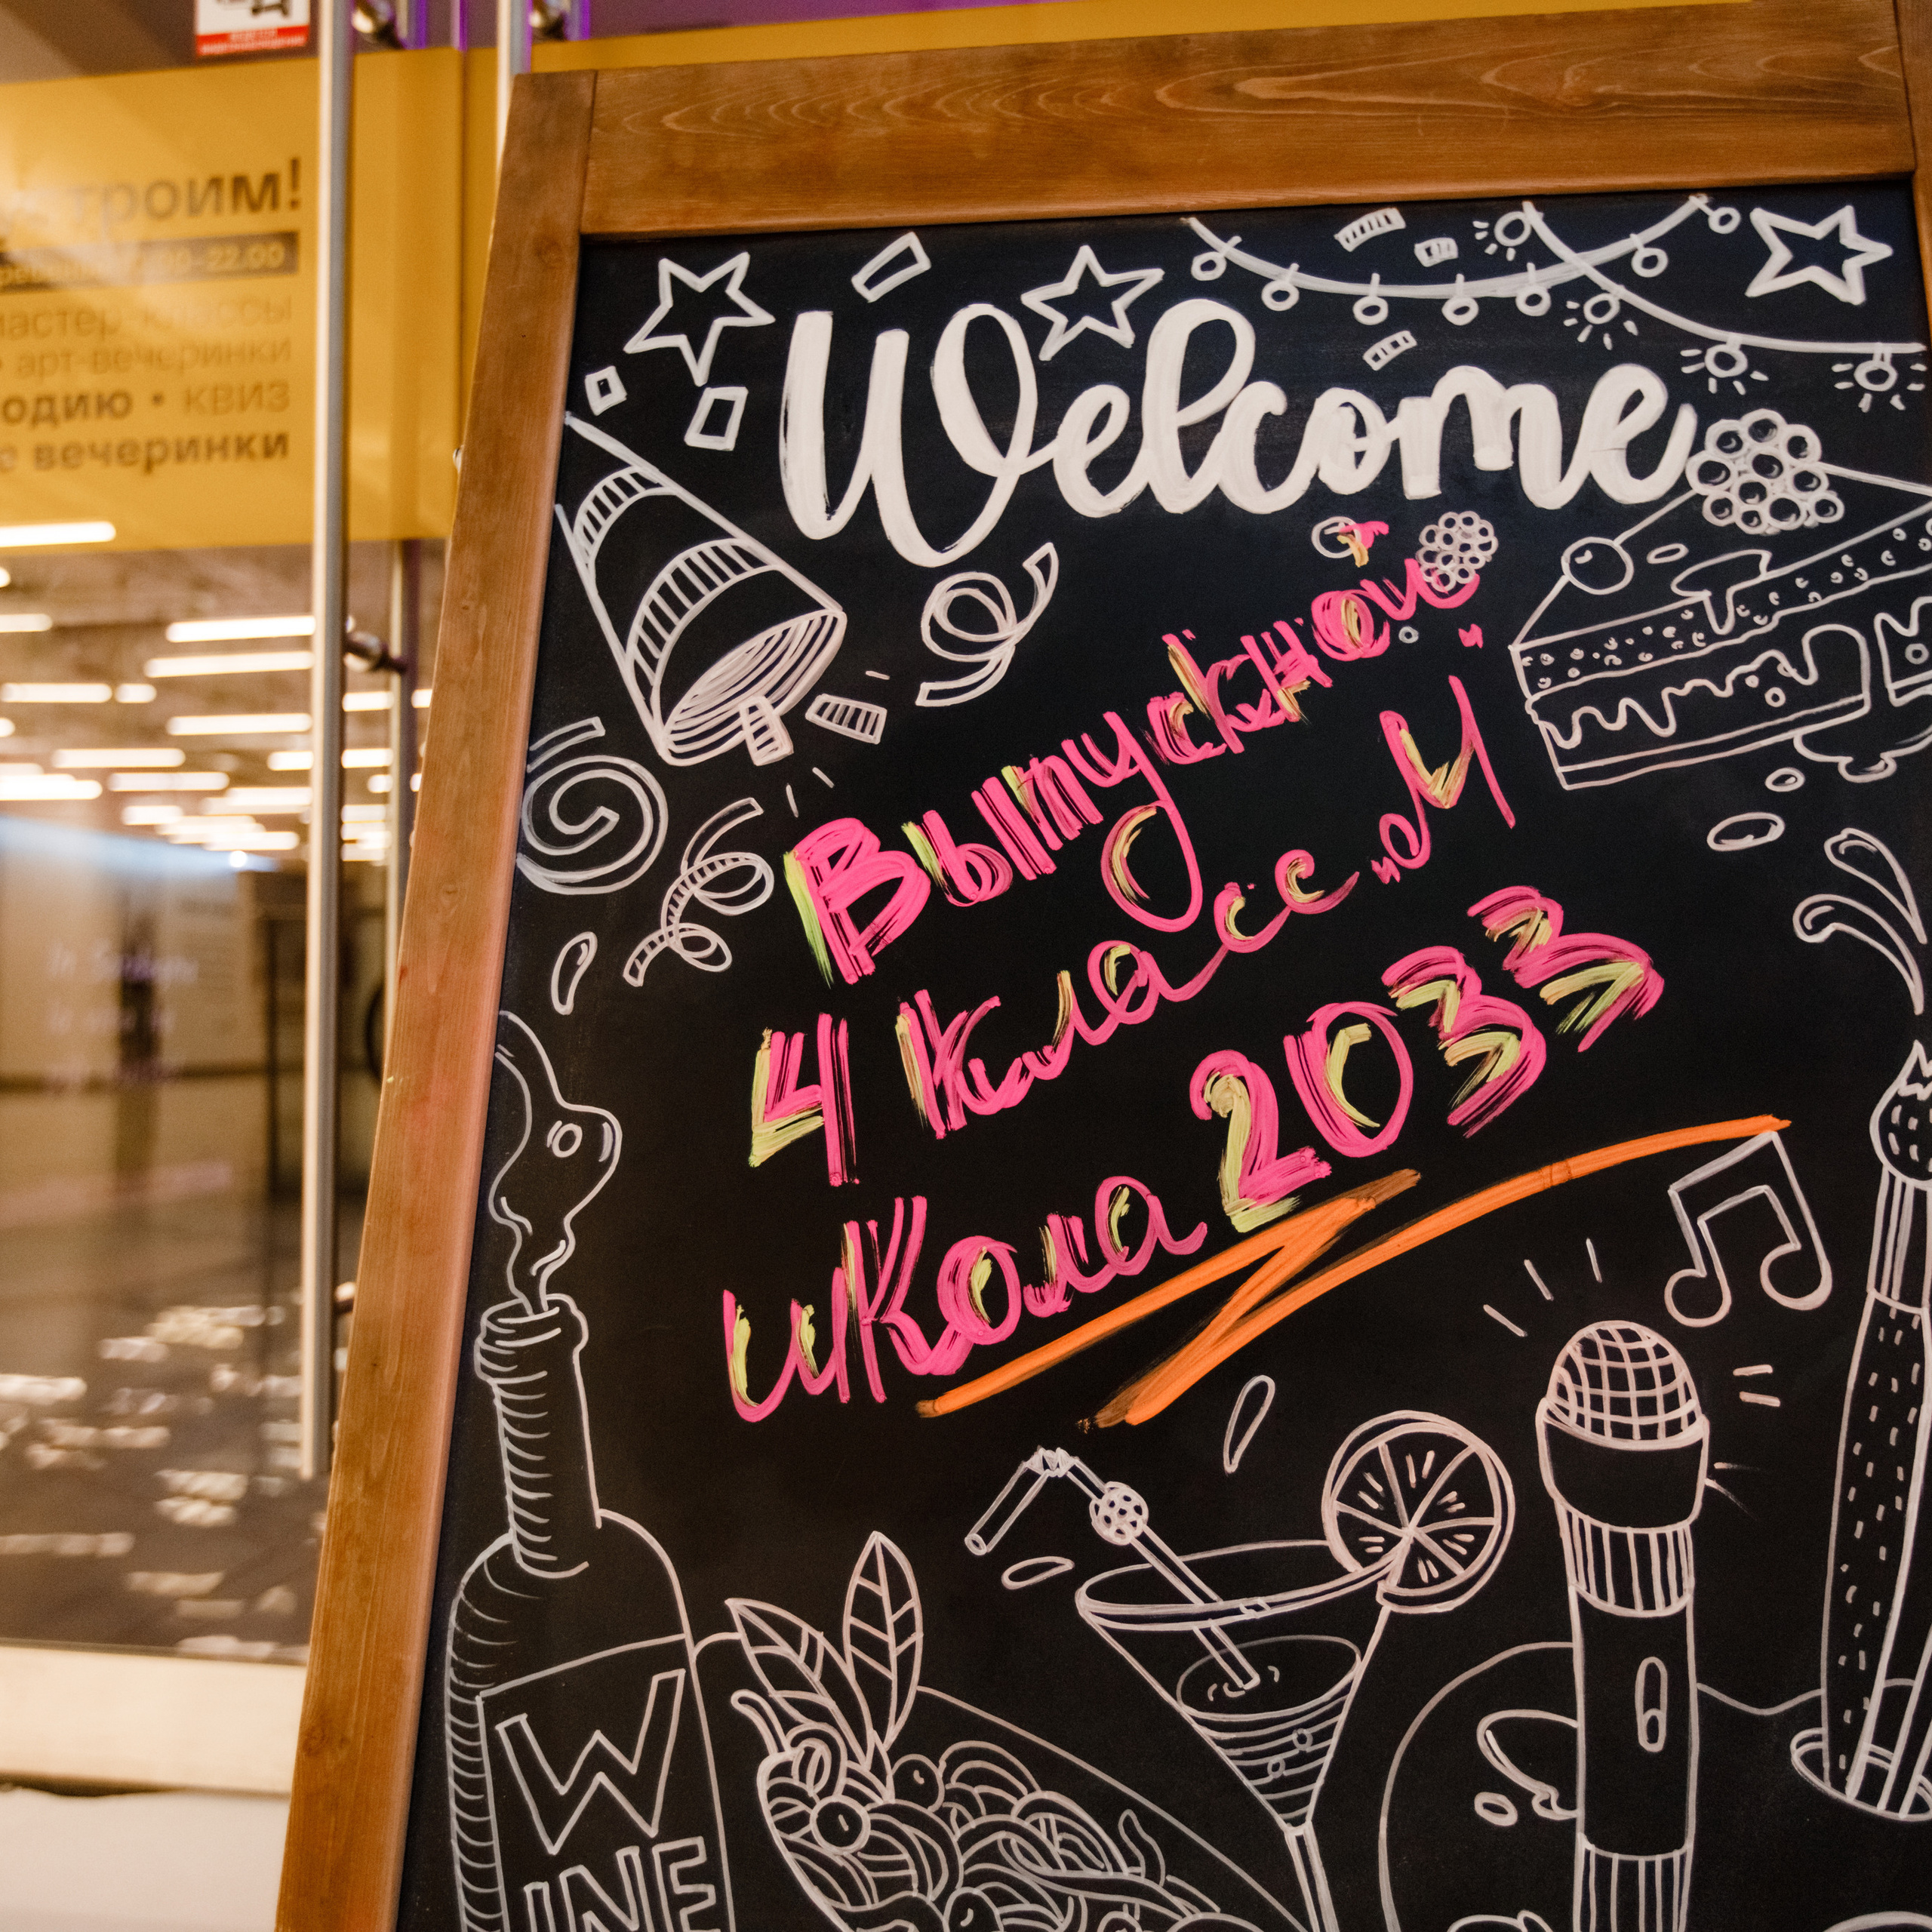 троим!
22.00
мастер-классы
• арт-вечеринки
одию • квиз
е вечеринки
Welcome
Выпускной
4 класс „М"
школа 2033
W
INE